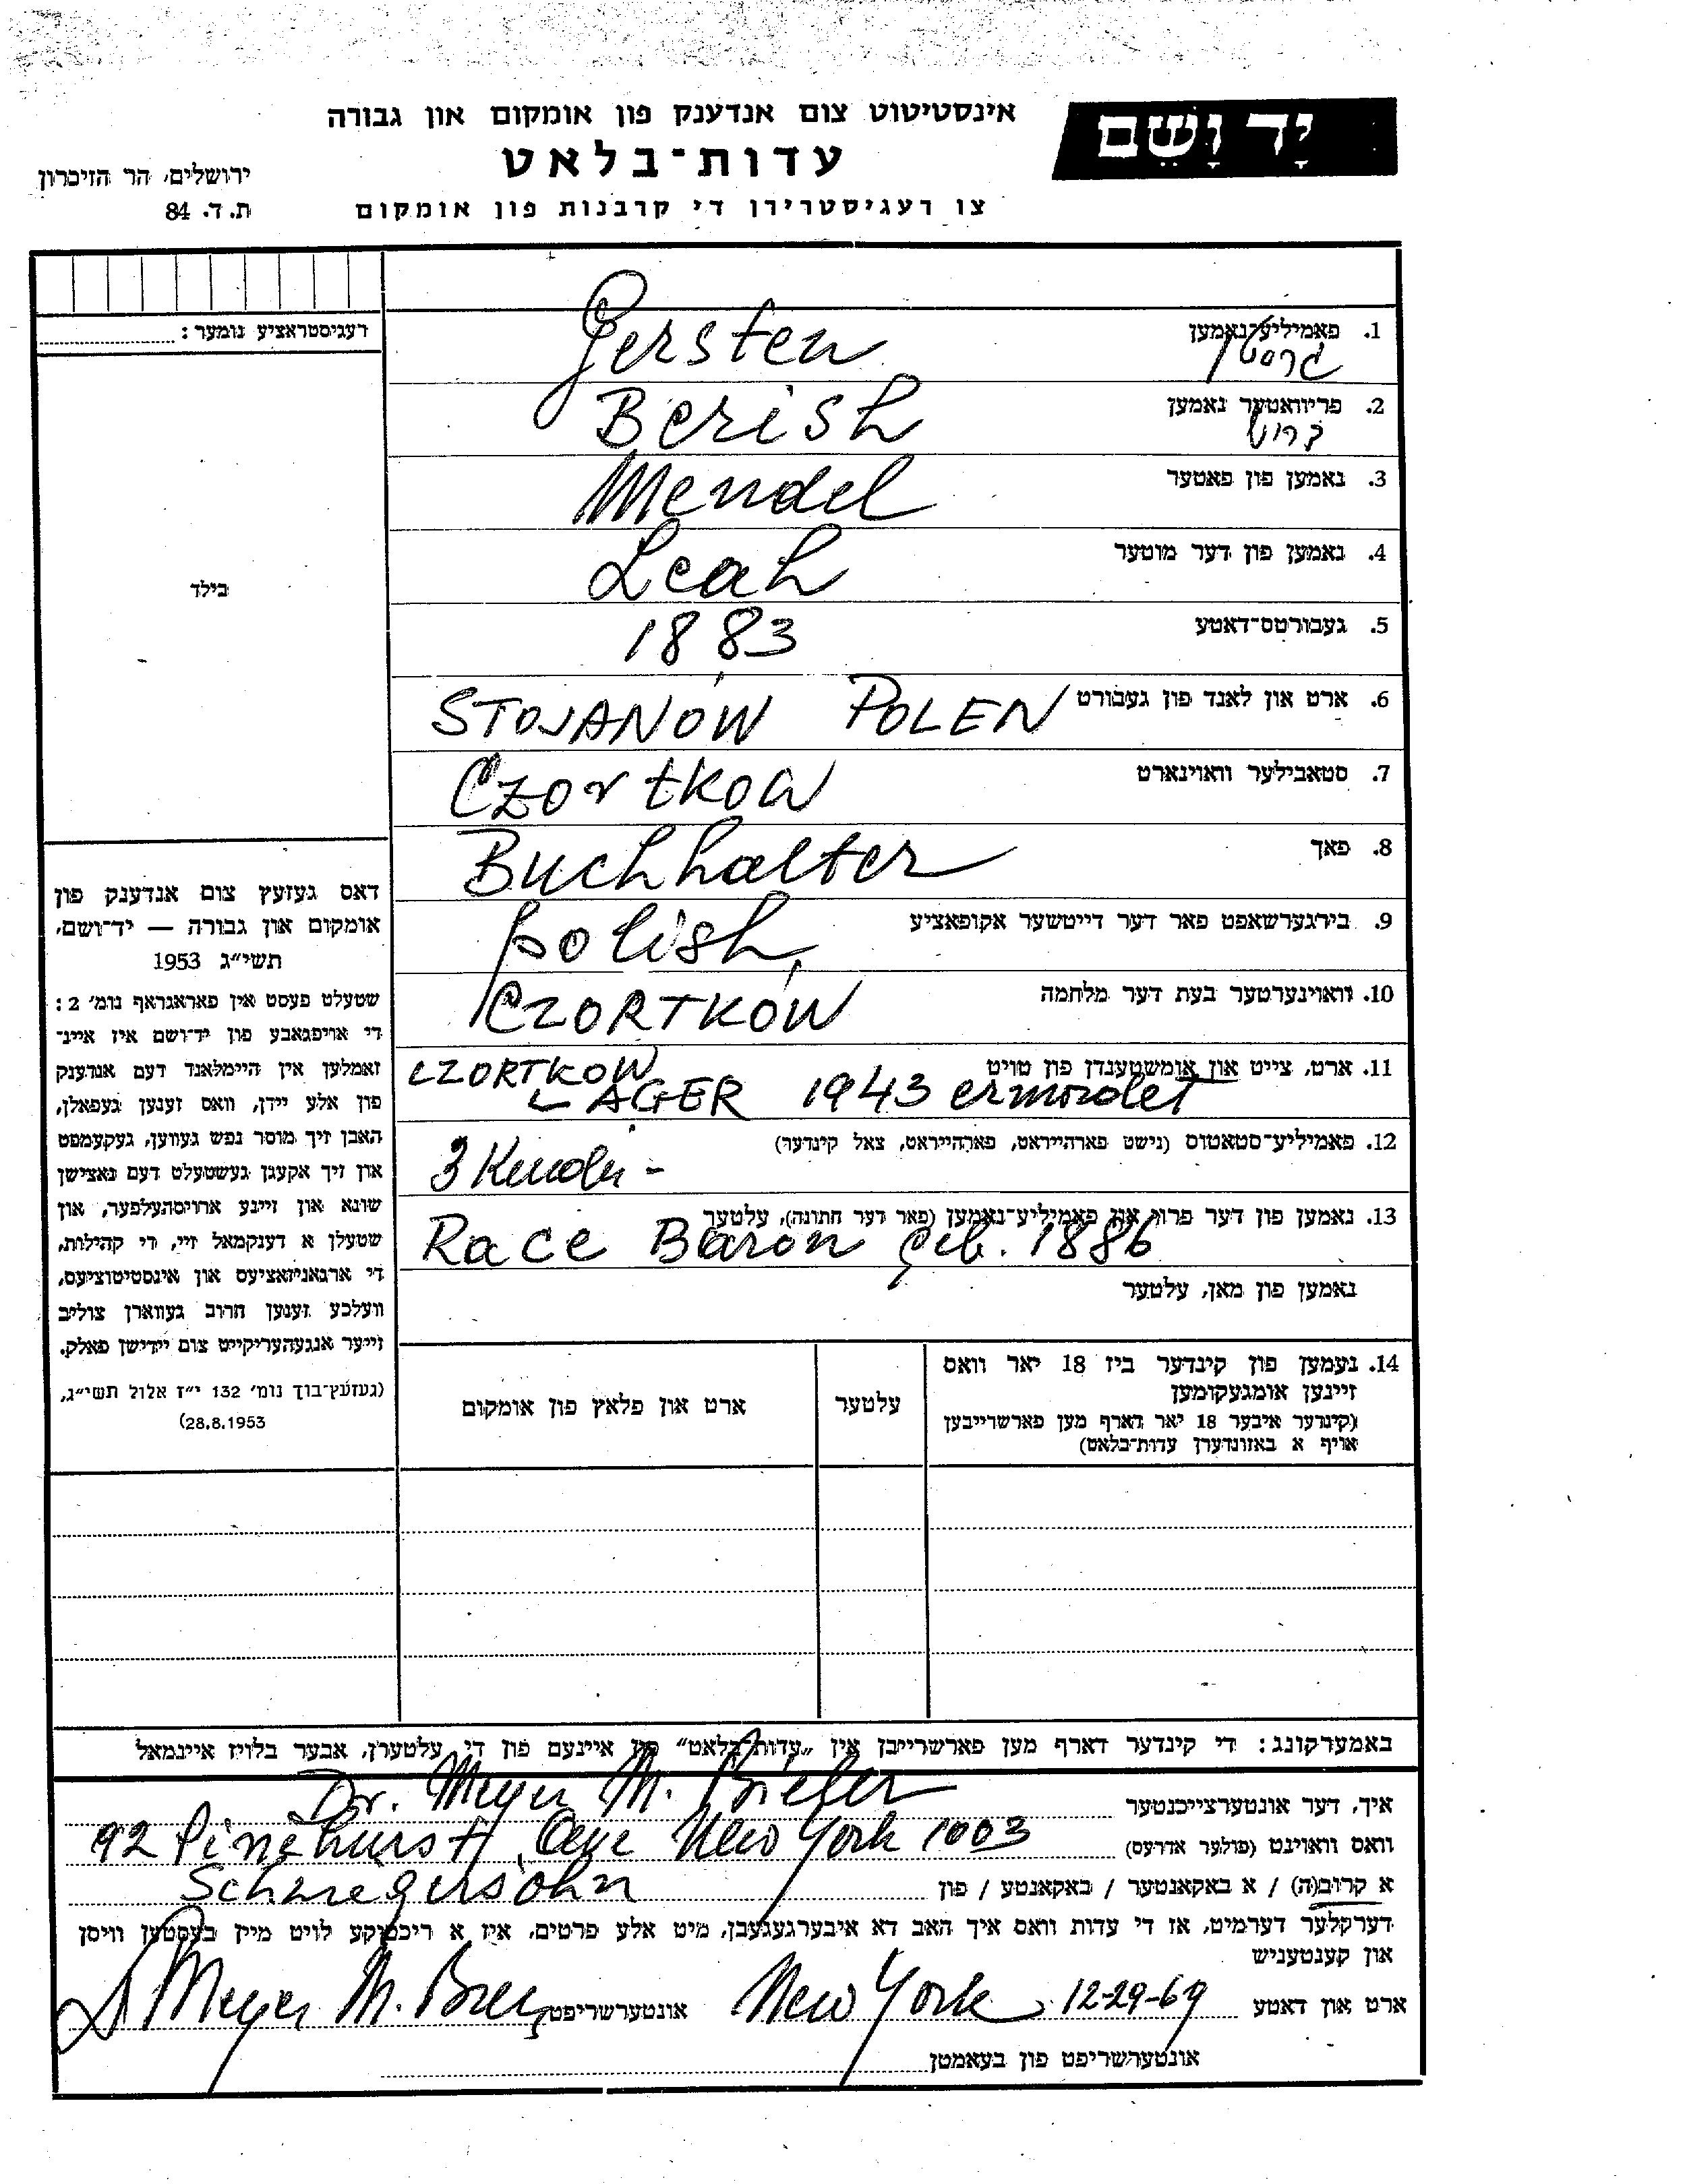 יָד וָשֵׁם
אינסטיטוט צום אנדענק פון אומקום און גבורה
עדות־בלאט
צו רעגיסטרירן די קרבנות פון אומקום
ירושלים, הר הזיכרון
ת. ד. 84
רעגיסטראציע נומער:
בילד
1. פאמיליע־נאמען
גרסטן
Gersten
2. פריוואטער נאמען
Berish
3. נאמען פון פאטער
Mendel
4. נאמען פון דער מוטער
Leah
5. געבורטס־דאטע
1883
6. ארט און לאנד פון געבורט
STOJANÓW POLEN
7. סטאבילער וואוינארט
Czortkow
8. פאך
Buchhalter
9. בירגערשאפט פאר דער דייטשער אקופאציע
polish
10. וואוינערטער בעת דער מלחמה
CZORTKÓW
11. ארט, צייט און אומשטענדן פון טויט
CZORTKOW
LAGER 1943 ermordet
12. פאמיליע־סטאטוס (נישט פארהייראט, פארהייראט, צאל קינדער)
3 Kinder -
13. נאמען פון דער פרוי און פאמיליע־נאמען (פאר דער חתונה), עלטער
Race Baron geb. 1886
נאמען פון מאן, עלטער
14. נעמען פון קינדער ביז 18 יאר וואס
זיינען אומגעקומען
(קינדער איבער 18 יאר דארף מען פארשרייבען
אויף א באזונדערן עדות־בלאט)
עלטער
ארט און פלאץ פון אומקום
דאס געזעץ צום אנדענק פון
אומקום און גבורה — יד־ושם,
תשי״ג 1953
שטעלט פעסט אין פאראגראף נומ׳ 2:
די אויפגאבע פון יד־ושם איז איינ־
זאמלען אין היימלאנד דעם אנדענק
פון אלע יידן, וואס זענען געפאלן,
האבן זיך מוסר נפש געווען, געקעמפט
און זיך אקעגן געשטעלט דעם נאצישן
שונא און זיינע ארויסהעלפער, און
שטעלן א דענקמאל זיי, די קהילות,
די ארגאניזאציעס און אינסטיטוציעס,
וועלכע זענען חרוב געווארן צוליב
זייער אנגעהעריקייט צום יידישן פאלק.
(געזעץ־בוך נומ׳ 132 י״ז אלול תשי״ג,
28.8.1953)
באמערקונג: די קינדער דארף מען פארשרייבן אין „עדות־בלאט״ פון איינעם פון די עלטערן, אבער בלויז איינמאל
איך, דער אונטערצייכנטער Dr. Meyer M. Bieler
וואס וואוינט (פולער אדרעס) 92 Pinehurst Ave New York 1003
א קרוב(ה) / א באקאנטער / באקאנטע / פון Schwiegersohn
דערקלער דערמיט, אז די עדות וואס איך האב דא איבערגעגעבן, מיט אלע פרטים, איז א ריכטיקע לויט מיין בעסטען וויסן
און קענטעניש
ארט און דאטע New York 12-29-69 אונטערשריפט Meyer M. Bieler
אונטערשריפט פון בעאמטן